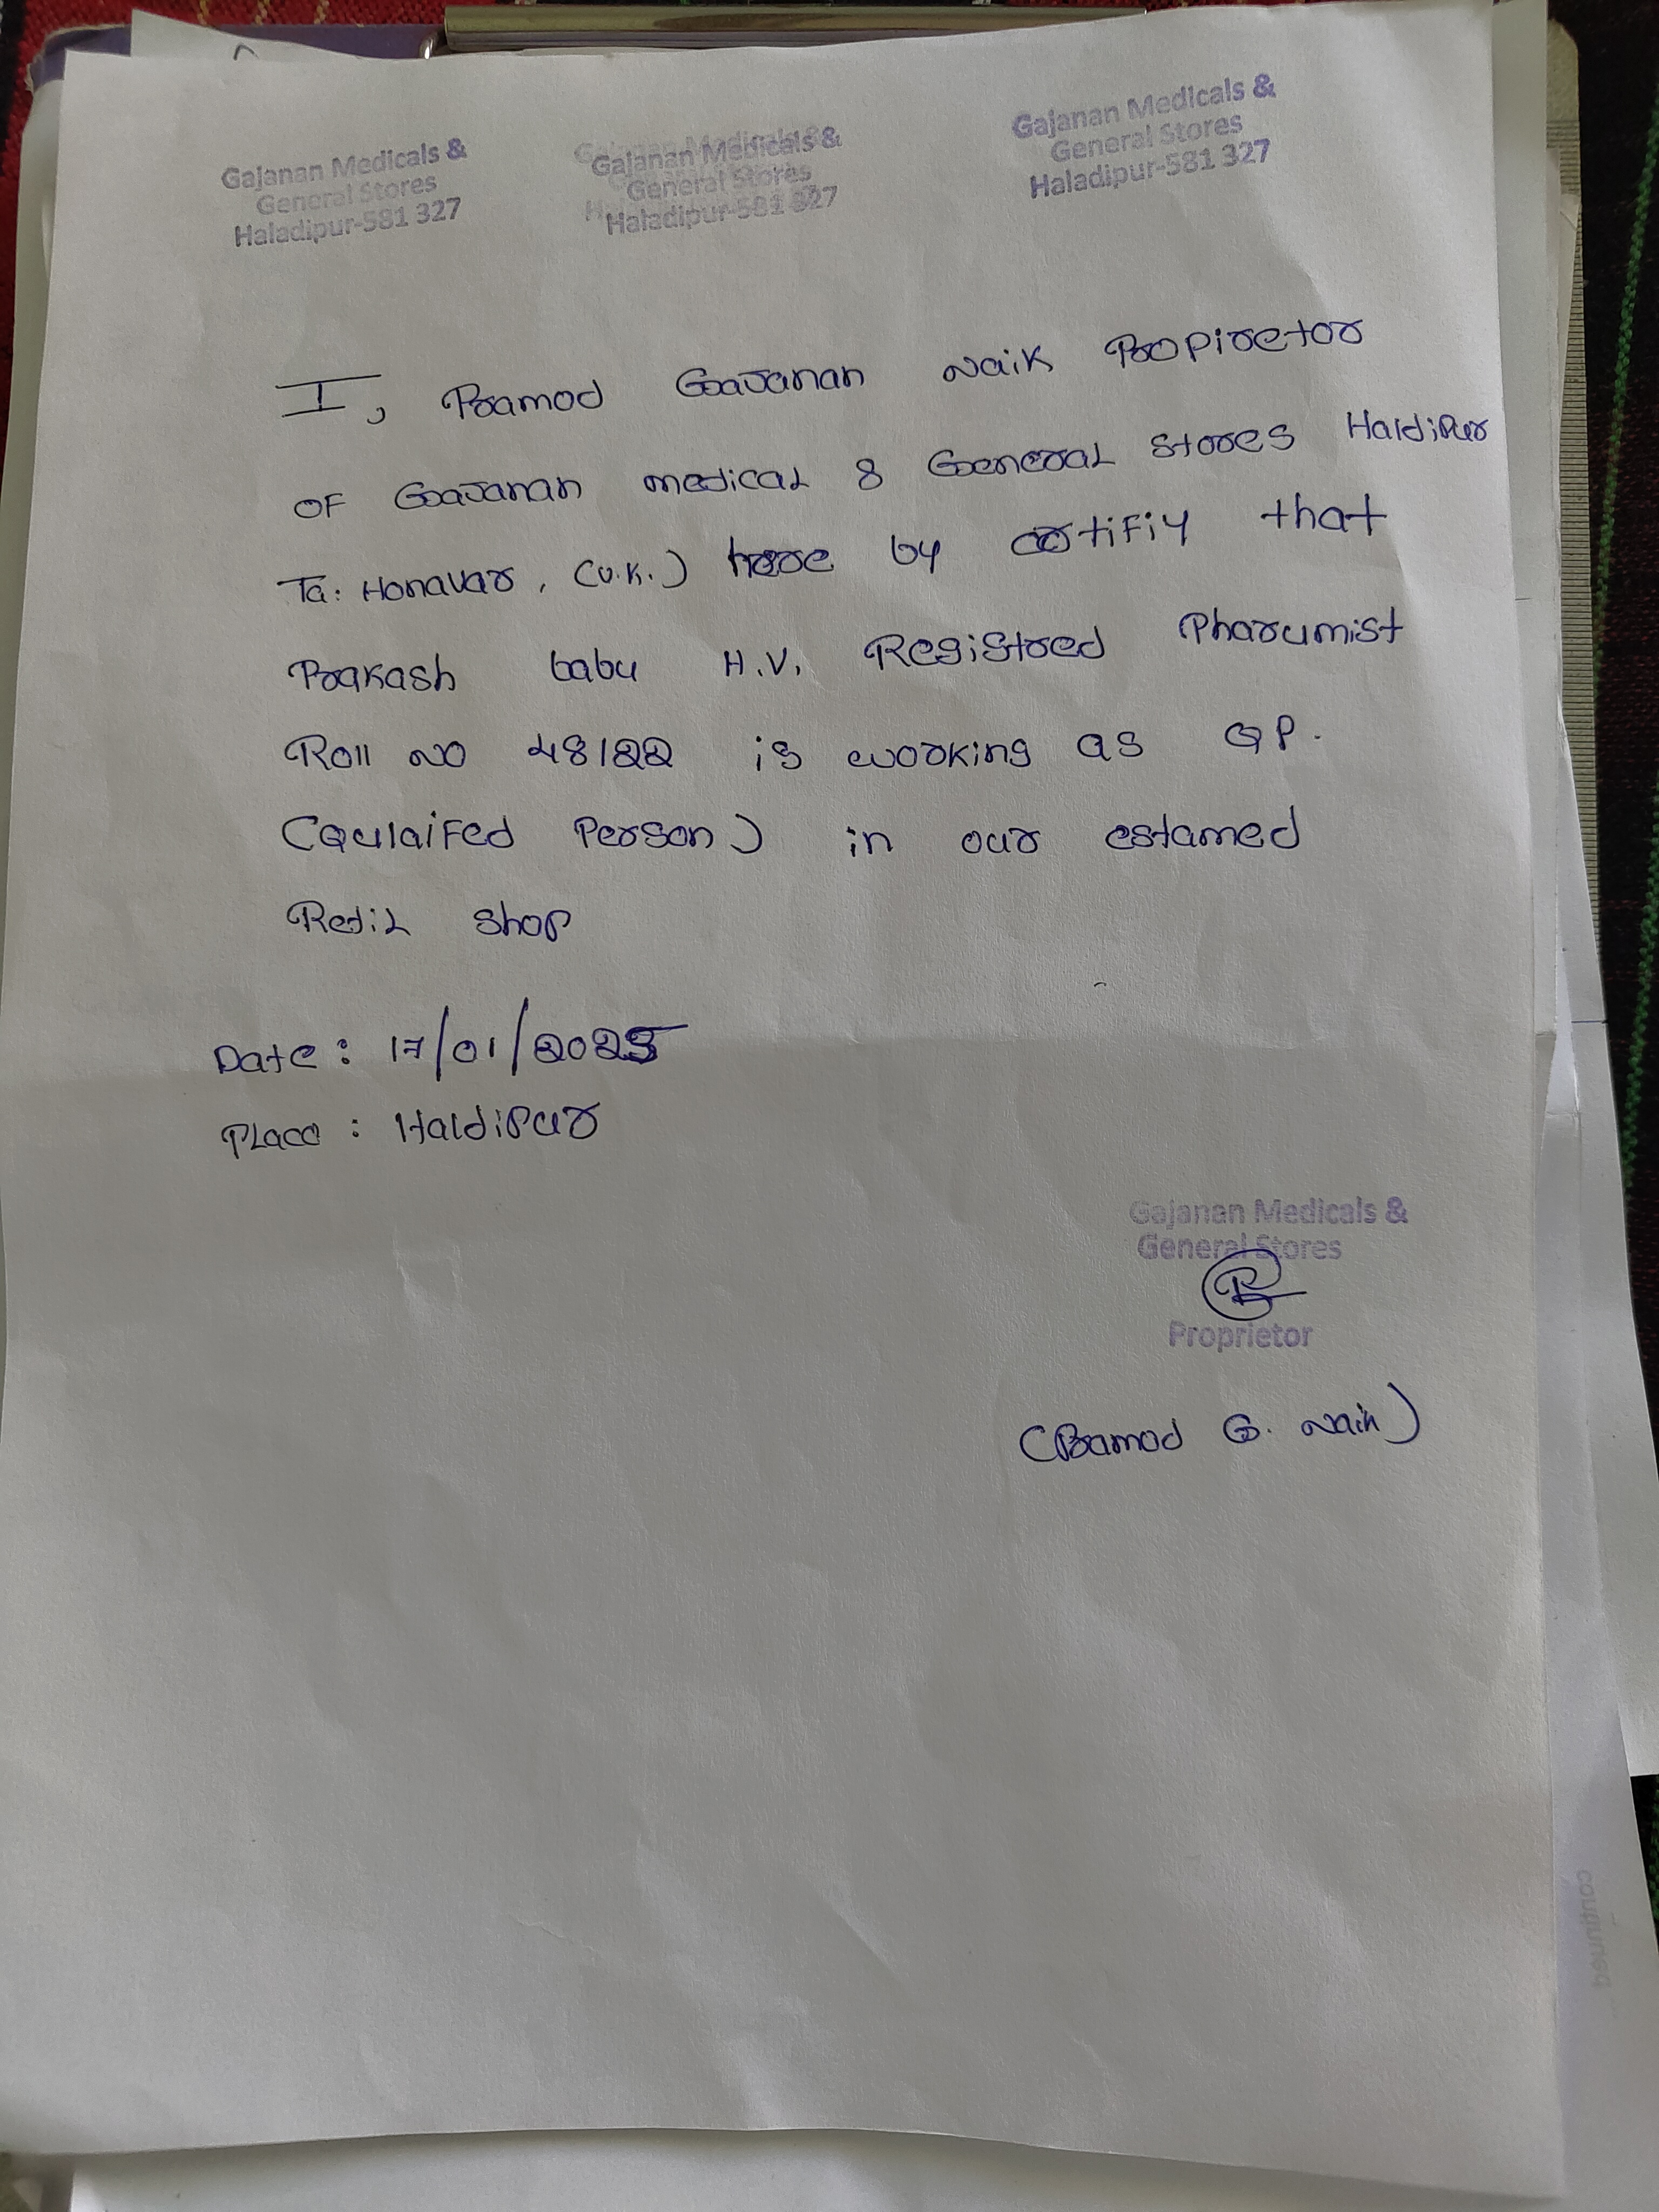 Gajanan Medicals &
General Stores
Haladipur-581 327
Gajanan Medicals &
General Stores
Haladipur-581 327
Gajanan Medicals &
General Stores
Haladipur-581 327
I, Pramod Gajanan Naik Propiretor
OF Gajanan medical & General Stores Haldipur
Ta: Honavar, (U.K.) here by certifiy that
Prakash babu H.V. Registred Pharumist
Roll No 48122 is working as QP.
(Qulaifed Person) in our estamed
Retil shop
Date : 17/01/2025
Place : Haldipur
Gajanan Medicals &
General Stores
Proprietor
(Pramod G. Naik)
continued